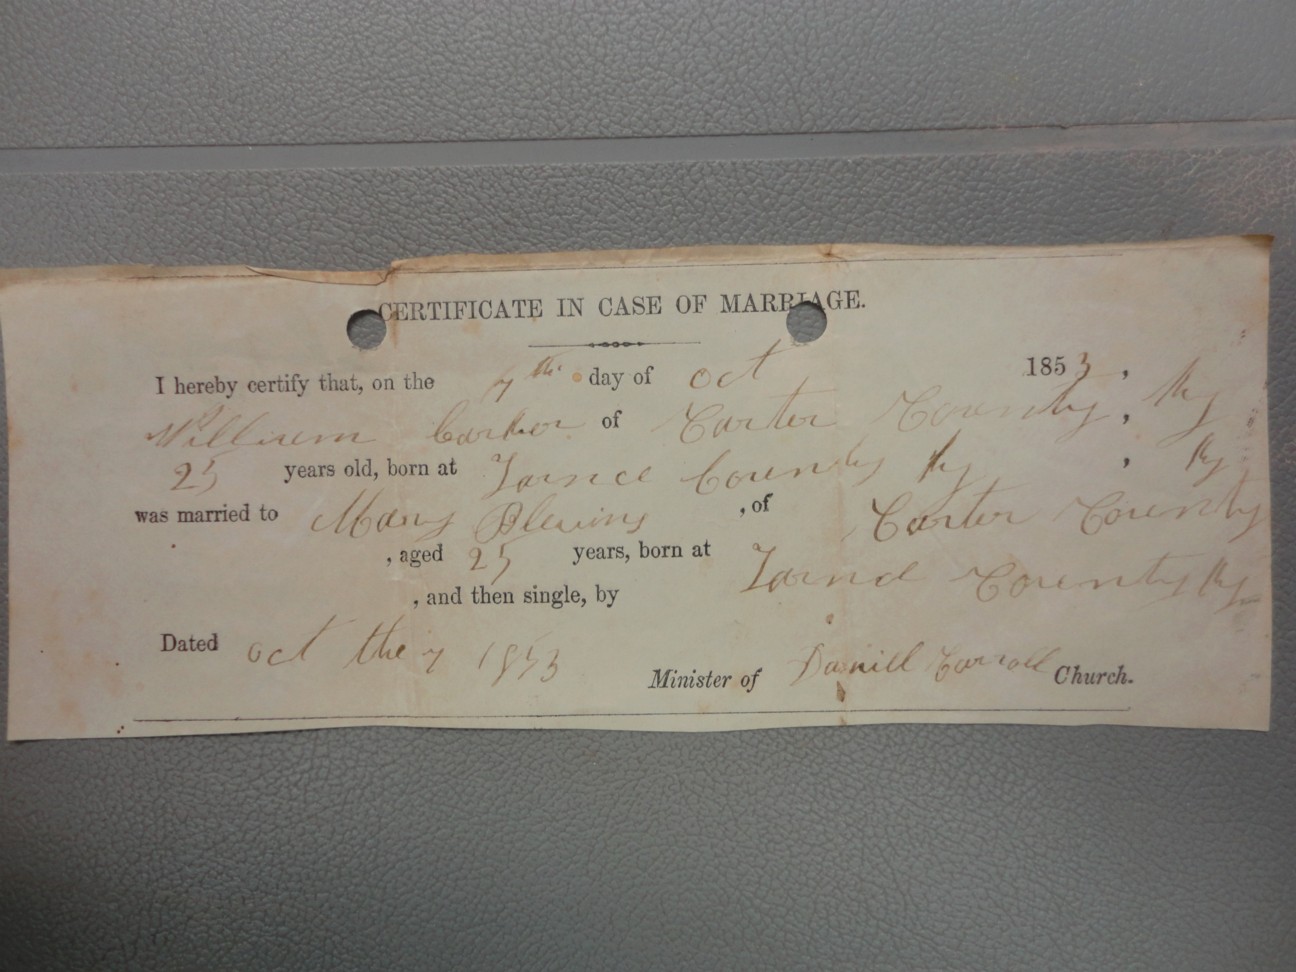 CERTIFICATE IN CASE OF MARRIAGE.
I hereby certify that, on the 7th day of oct 1853,
William of Carter County, Ky
25 years old, born at County Ky, Ky
was married to Mary Blevins, of Carter County
, aged 25 years, born at County Ky
, and then single, by
Dated oct the 7 1853
Minister of Daniell Carroll Church.